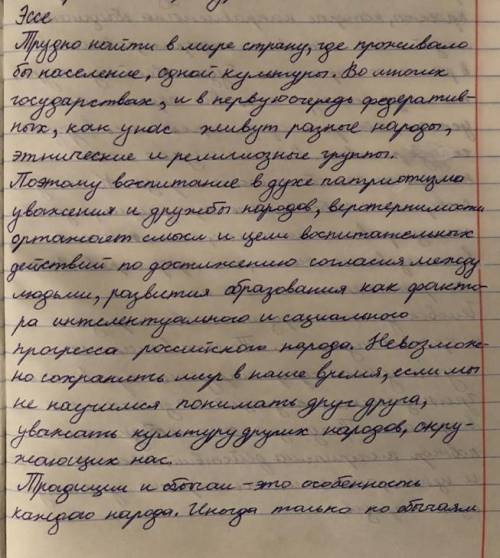 Эссе
Трудно найти в мире страну, где проживало
бы население, одной культуры. Во многих
государствах, и в первую очередь федератив-
ных, как у нас живут разные народы,
этнические и религиозные группы.
Поэтому воспитание в духе патриотизма
уважения и дружбы народов, веротерпимости
отражает смысл и цели воспитательных
действий по достижению согласия между
людьми, развития образования как факто-
ра интелектуального и социального
прогресса российского народа. Невозмож-
но сохранить мир в наше время, если мы
не научимся понимать друг друга,
уважать культуру других народов, окру-
жающих нас.
Традиции и обычаи - это особенность
каждого народа. Иногда только по обычаям